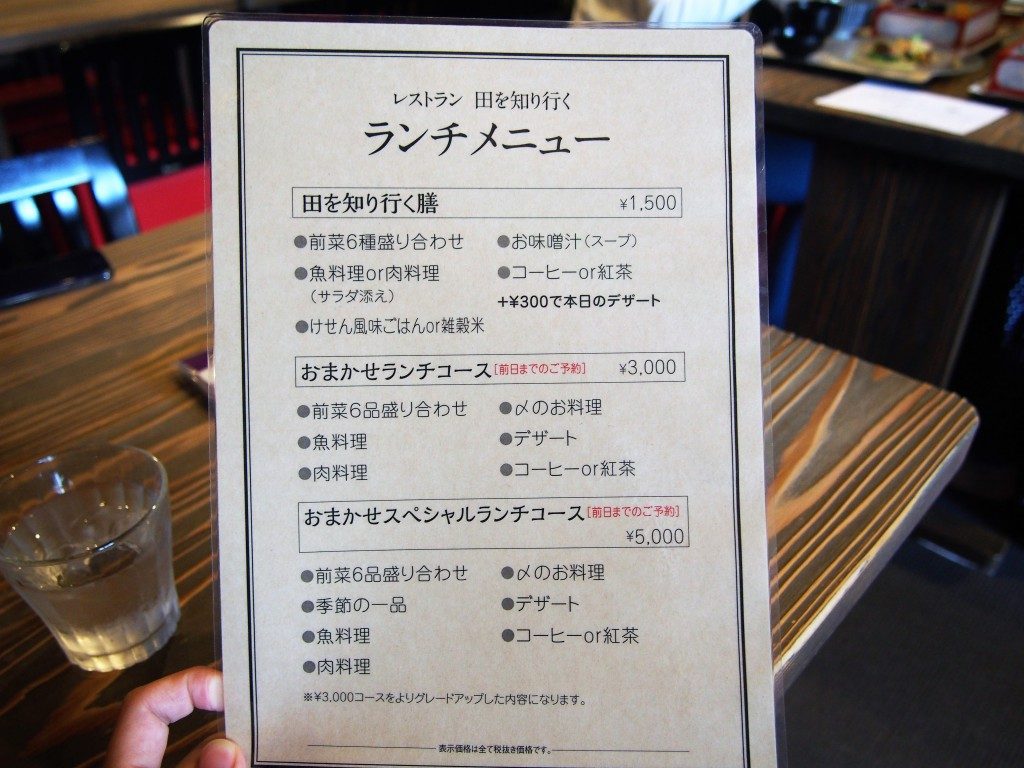 レストラン 田を知り行く
ランチメニュー
田を知り行く膳 ¥1,500
●前菜6種盛り合わせ
●魚料理or肉料理
（サラダ添え）
●けせん風味ごはんor雑穀米
●お味噌汁（スープ）
●コーヒーor紅茶
+¥300で本日のデザート
おまかせランチコース［前日までのご予約］ ¥3,000
●前菜6品盛り合わせ
●魚料理
●肉料理
●〆のお料理
●デザート
●コーヒーor紅茶
おまかせスペシャルランチコース［前日までのご予約］
¥5,000
●前菜6品盛り合わせ
●季節の一品
●魚料理
●肉料理
●〆のお料理
●デザート
●コーヒーor紅茶
※¥3,000コースをよりグレードアップした内容になります。
表示価格は全て税抜き価格です。